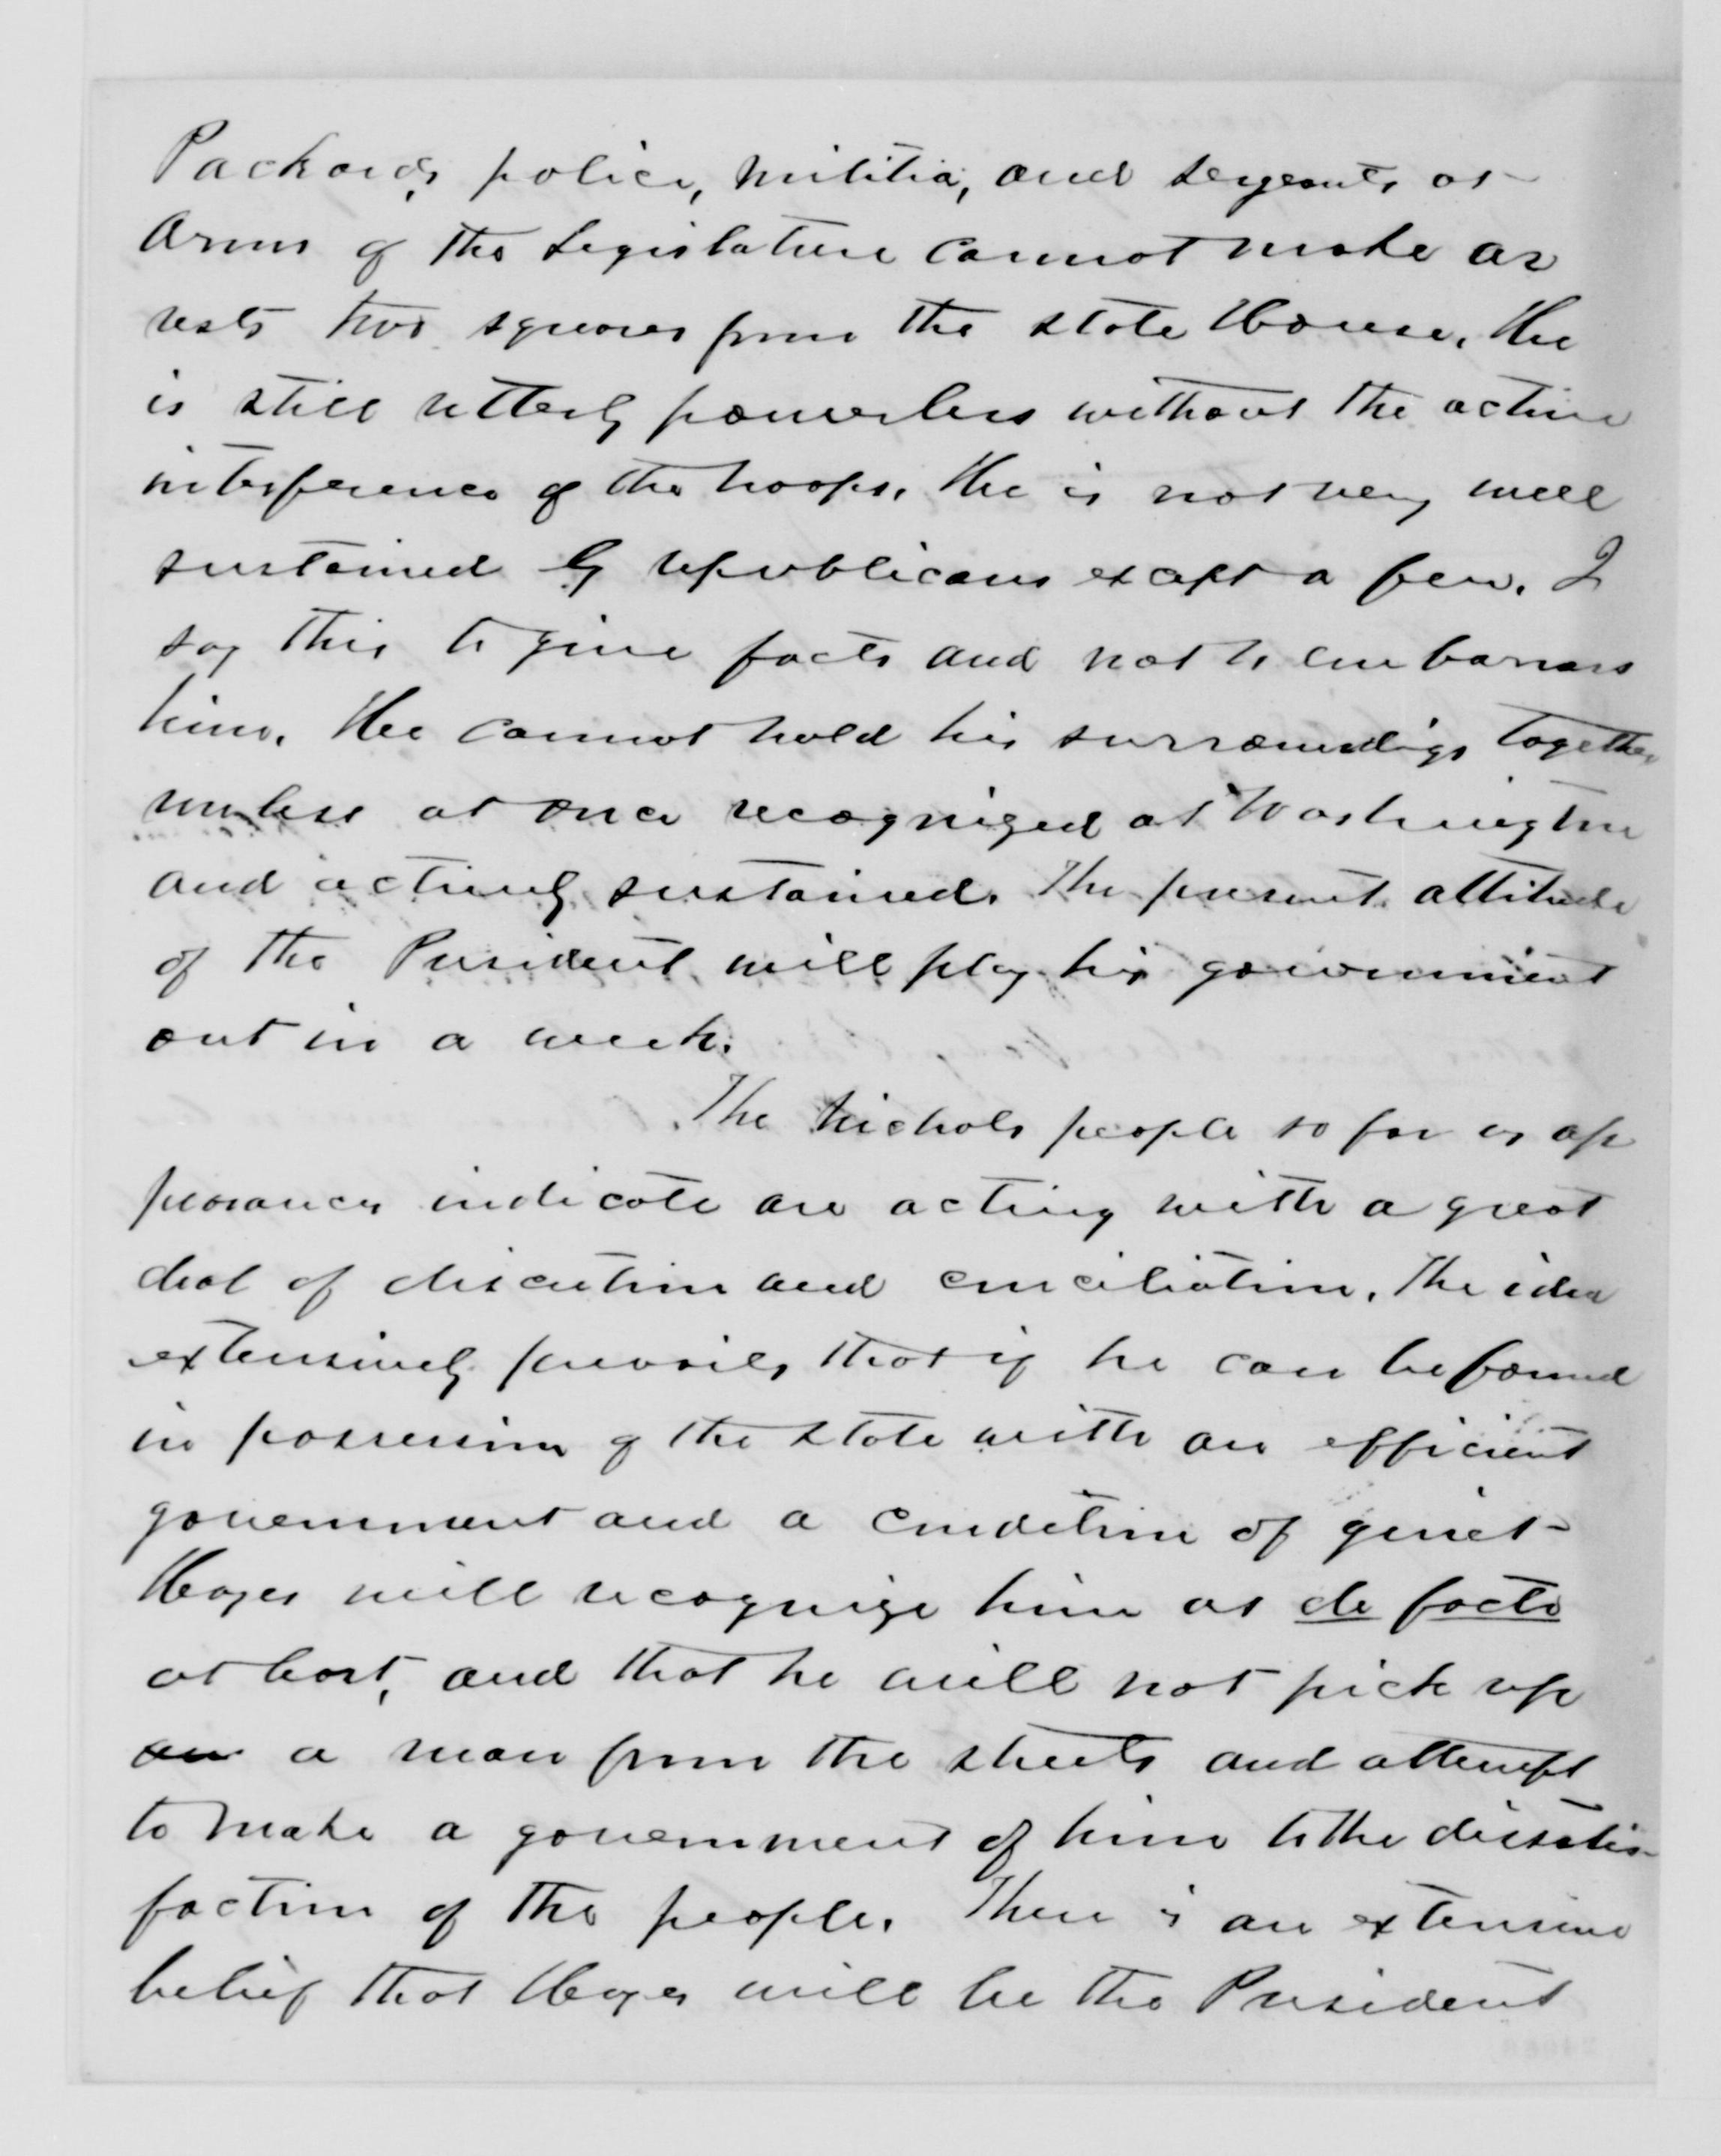 Packards police, militia, and sergeants at
Arms of the Legislature cannot make ar
rests two squares from the State House. He
is still utterly powerless without the active
interference of the troops. He is not very well
sustained by republicans except a few. I
say this to give facts and not to embarrass
him. He cannot hold his surroundings together
unless at once recognized at Washington
and actively sustained. The present attitude
of the President will play his government
out in a week.
The Nichols people so far as ap
pearances indicate are acting with a great
deal of discretion and conciliation. The idea
extensively prevails that if he can be found
in possession of the State with an efficient
government and a condition of quiet
Hayes will recognize him as de facto
at least, and that he will not pick up
an a man from the streets and attempt
to make a government of him to the dissatis-
faction of the people. There is an extensive
belief that Hayes will be the President